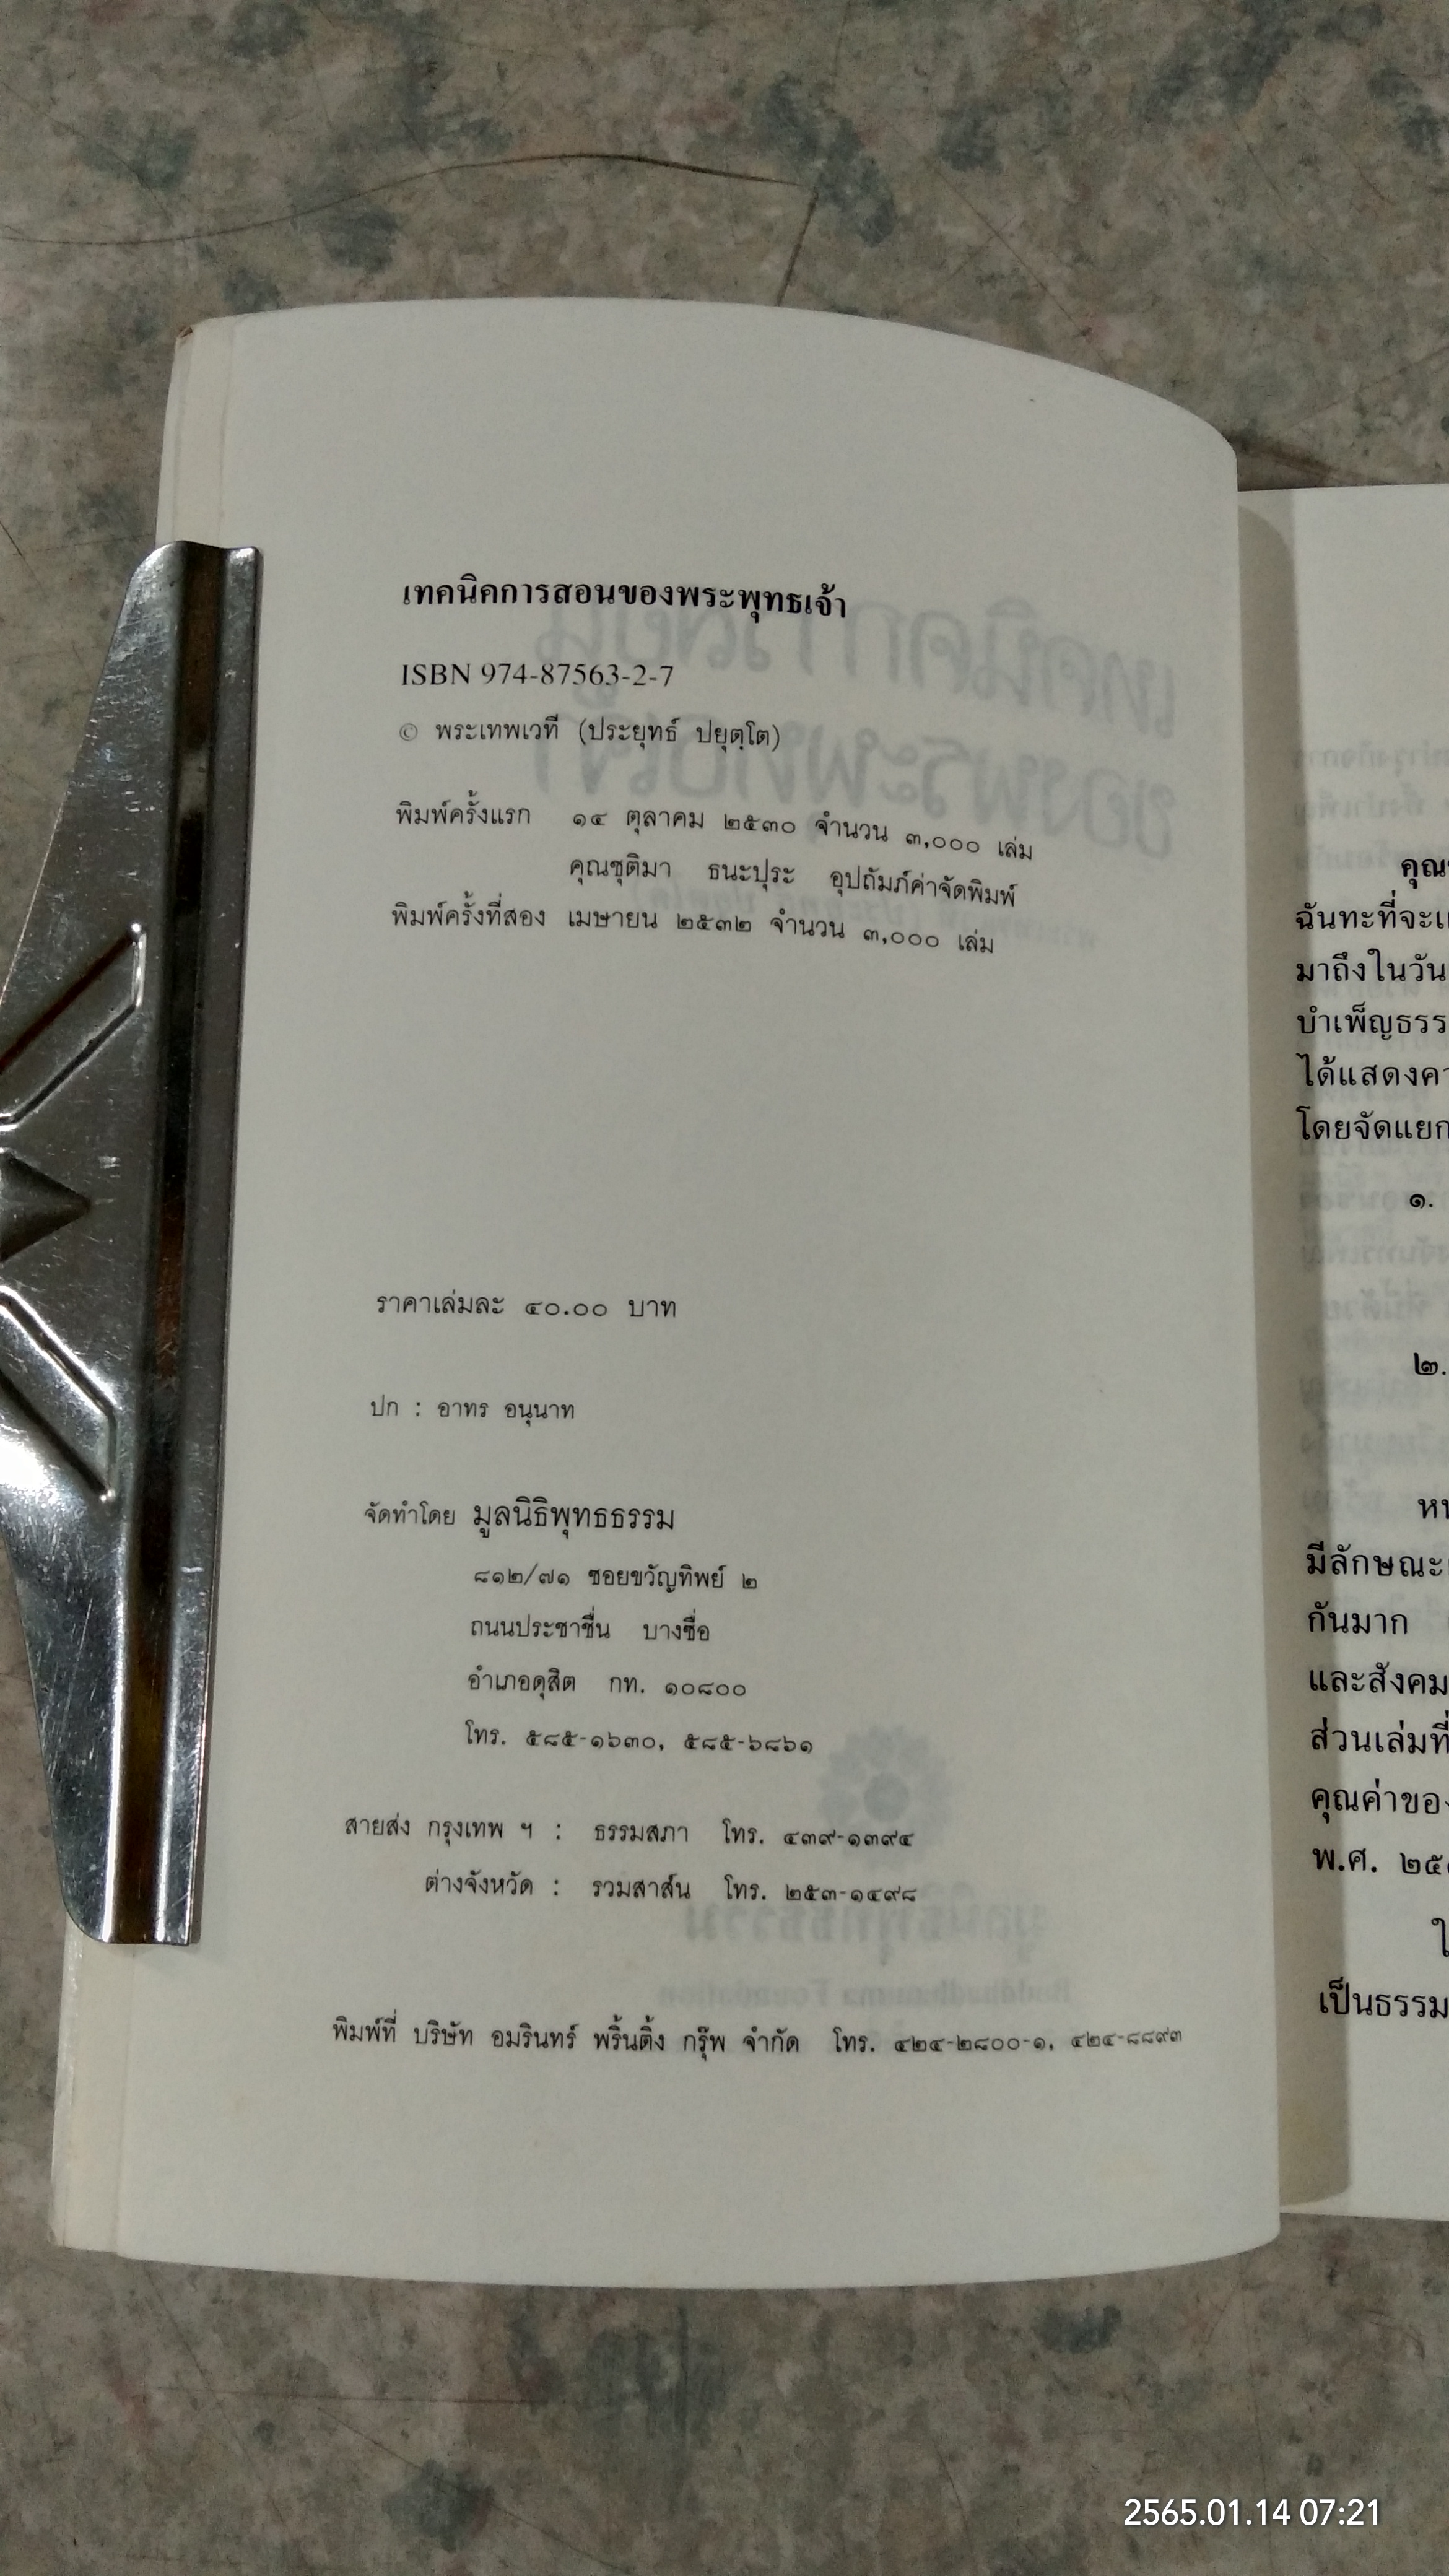 เทคนิคการสอนของพระพุทธเจ้า
ISBN 974-87563-2-7
© พระเทพเวที (ประยุทธ์ ปยุตฺโต)
พิมพ์ครั้งแรก ๑๔ ตุลาคม ๒๕๓๐ จำนวน ๓,๐๐๐ เล่ม
คุณชุติมา ธนะปุระ อุปถัมภ์ค่าจัดพิมพ์
พิมพ์ครั้งที่สอง เมษายน ๒๕๓๒ จำนวน ๓,๐๐๐ เล่ม
ราคาเล่มละ ๔๐.๐๐ บาท
ปก : อาทร อนุนาท
จัดทำโดย มูลนิธิพุทธธรรม
๘๑๒/๗๑ ซอยขวัญทิพย์ ๒
ถนนประชาชื่น บางซื่อ
อำเภอดุสิต กท. ๑๐๘๐๐
โทร. ๕๘๕-๑๖๓๐, ๕๘๕-๖๘๖๑
สายส่ง กรุงเทพ ฯ : ธรรมสภา โทร. ๔๓๙-๑๓๙๔
ต่างจังหวัด : รวมสาส์น โทร. ๒๕๓-๑๔๙๘
พิมพ์ที่ บริษัท อมรินทร์ พริ้นติ้ง กรุ๊พ จำกัด โทร. ๔๒๔-๒๘๐๐-๑, ๔๒๔-๘๘๙๓
ฉันทะที่จะ
มาถึงในวัน
บำเพ็ญธรร
ได้แสดงคว
โดยจัดแยก
๑.
๒.
มีลักษณะ
กันมาก
และสังคม
ส่วนเล่มที่
คุณค่าของ
พ.ศ.
เป็นธรรม
2565.01.14 07:21